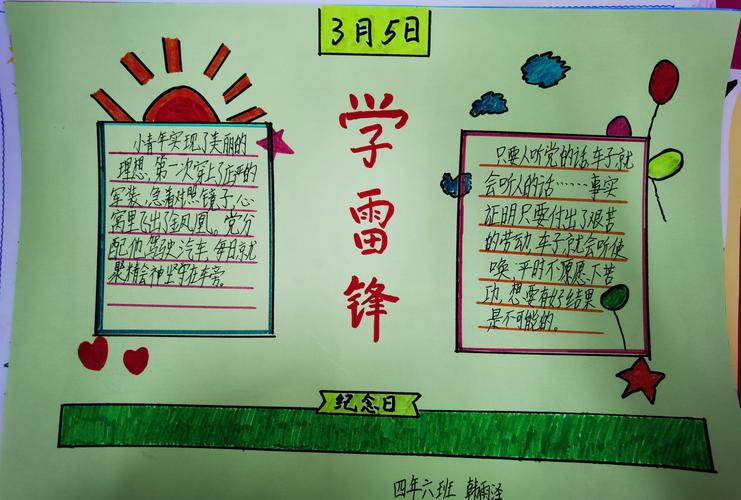 3月5日
学雷锋
小青年实现了美丽的
理想,第一次穿上了庄严的
军装,急着对照镜子,心
窝里飞出了金凤凰。党分
配他驾驶汽车,每日就
聚精会神坚守在车旁
只要人听党的话,车子就
会听人的话……事实
证明只要付出了艰苦
的劳动,车子就会听使
唤,平时不愿意下苦
功,想要有好结果
是不可能的。
纪念日
四年六班 韩雨泽